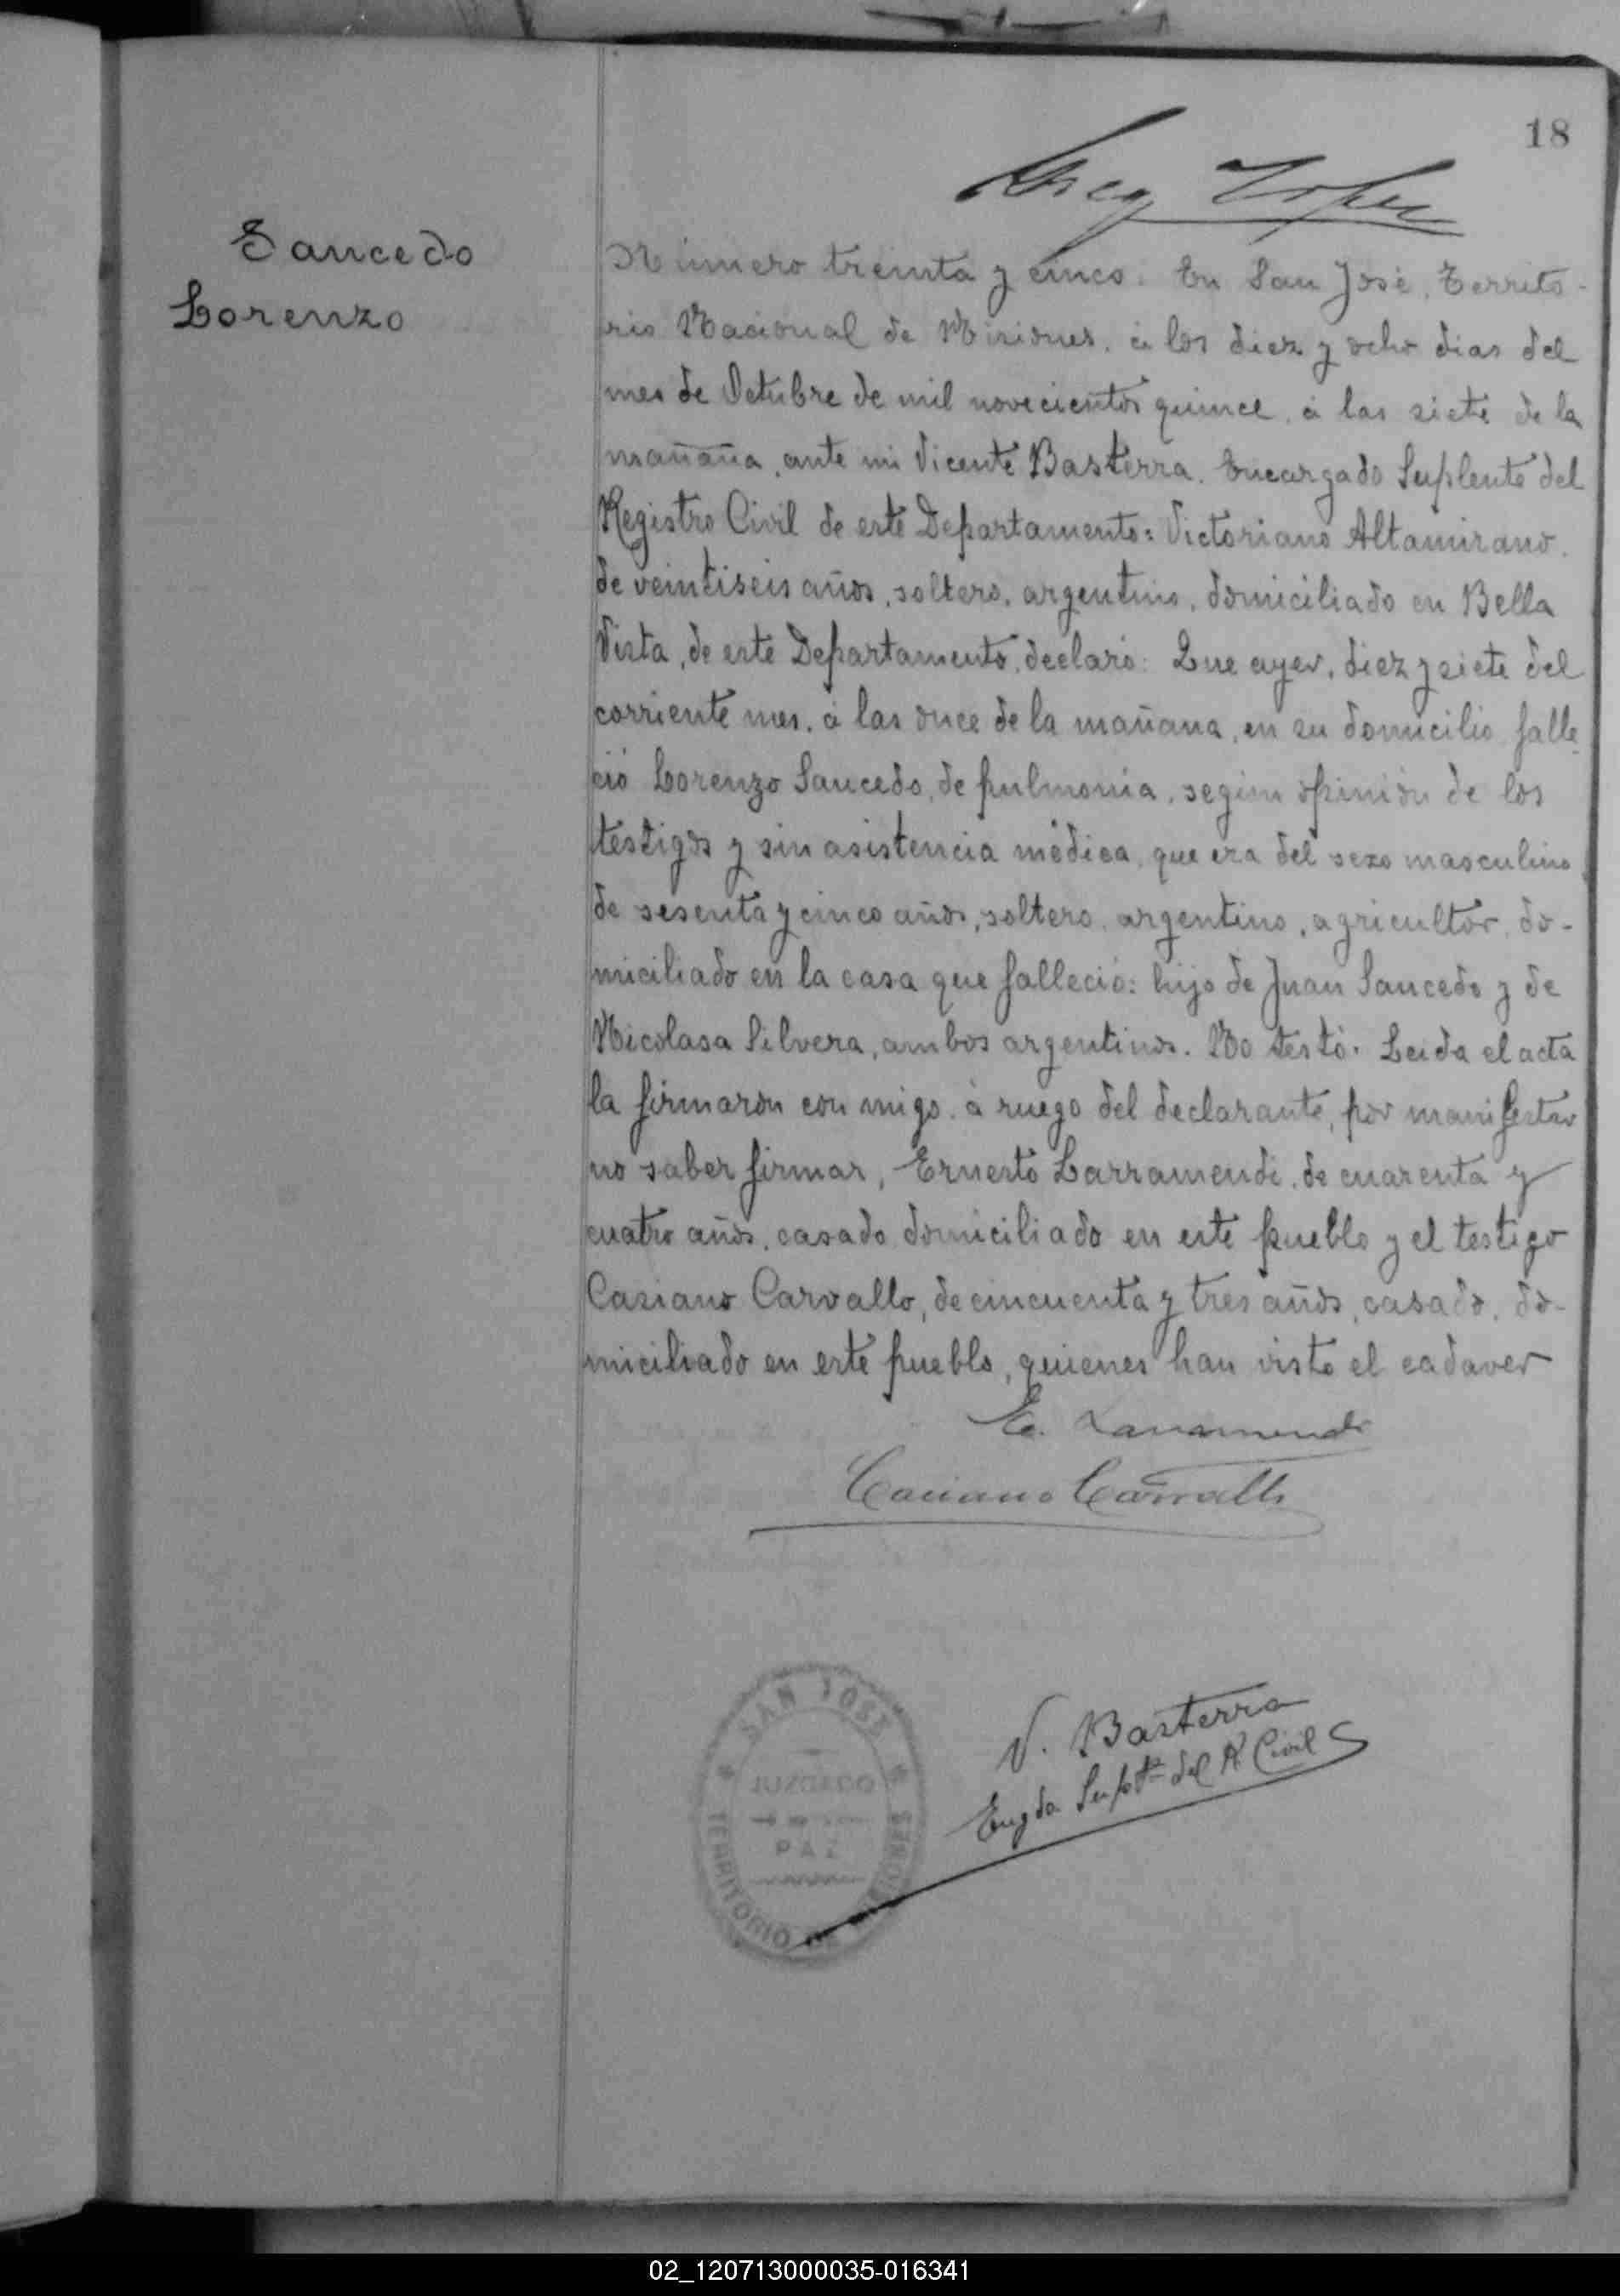 18
Saucedo
Lorenzo
Número treinta y cinco. En San José, Territo-
rio Nacional de Misiones, á los diez y ocho dias del
mes de Octubre de mil novecientos quince, á las siete de la
mañana, ante mi Vicente Basterra, Encargado Suplente del
Registro Civil de este Departamento: Victoriano Altamirano,
de veintiseis años, soltero, argentino, domiciliado en Bella
Vista, de este Departamento, declaró: Que ayer, diez y siete del
corriente mes, á las once de la mañana, en su domicilio falle-
ció Lorenzo Saucedo, de pulmonia, según opinión de los
testigos y sin asistencia médica, que era del sexo masculino,
de sesenta y cinco años, soltero, argentino, agricultor, do-
miciliado en la casa que falleció: hijo de Juan Saucedo y de
Nicolasa Silvera, ambos argentinos. No testó. Leida el acta
la firmaron con migo, á ruego del declarante, por manifestar
no saber firmar, Ernesto Larramendi, de cuarenta y
cuatro años, casado domiciliado en este pueblo y el testigo
Casiano Carvallo, de cincuenta y tres años, casado, do-
miciliado en este pueblo, quienes han visto el cadaver
E. Larramendi
Casiano Carvallo
V. Basterra
Engdo Supte del R. Civil
SAN JOSE
JUZGADO
PAZ
TERRITORIO DE MISIONES
02_120713000035-016341